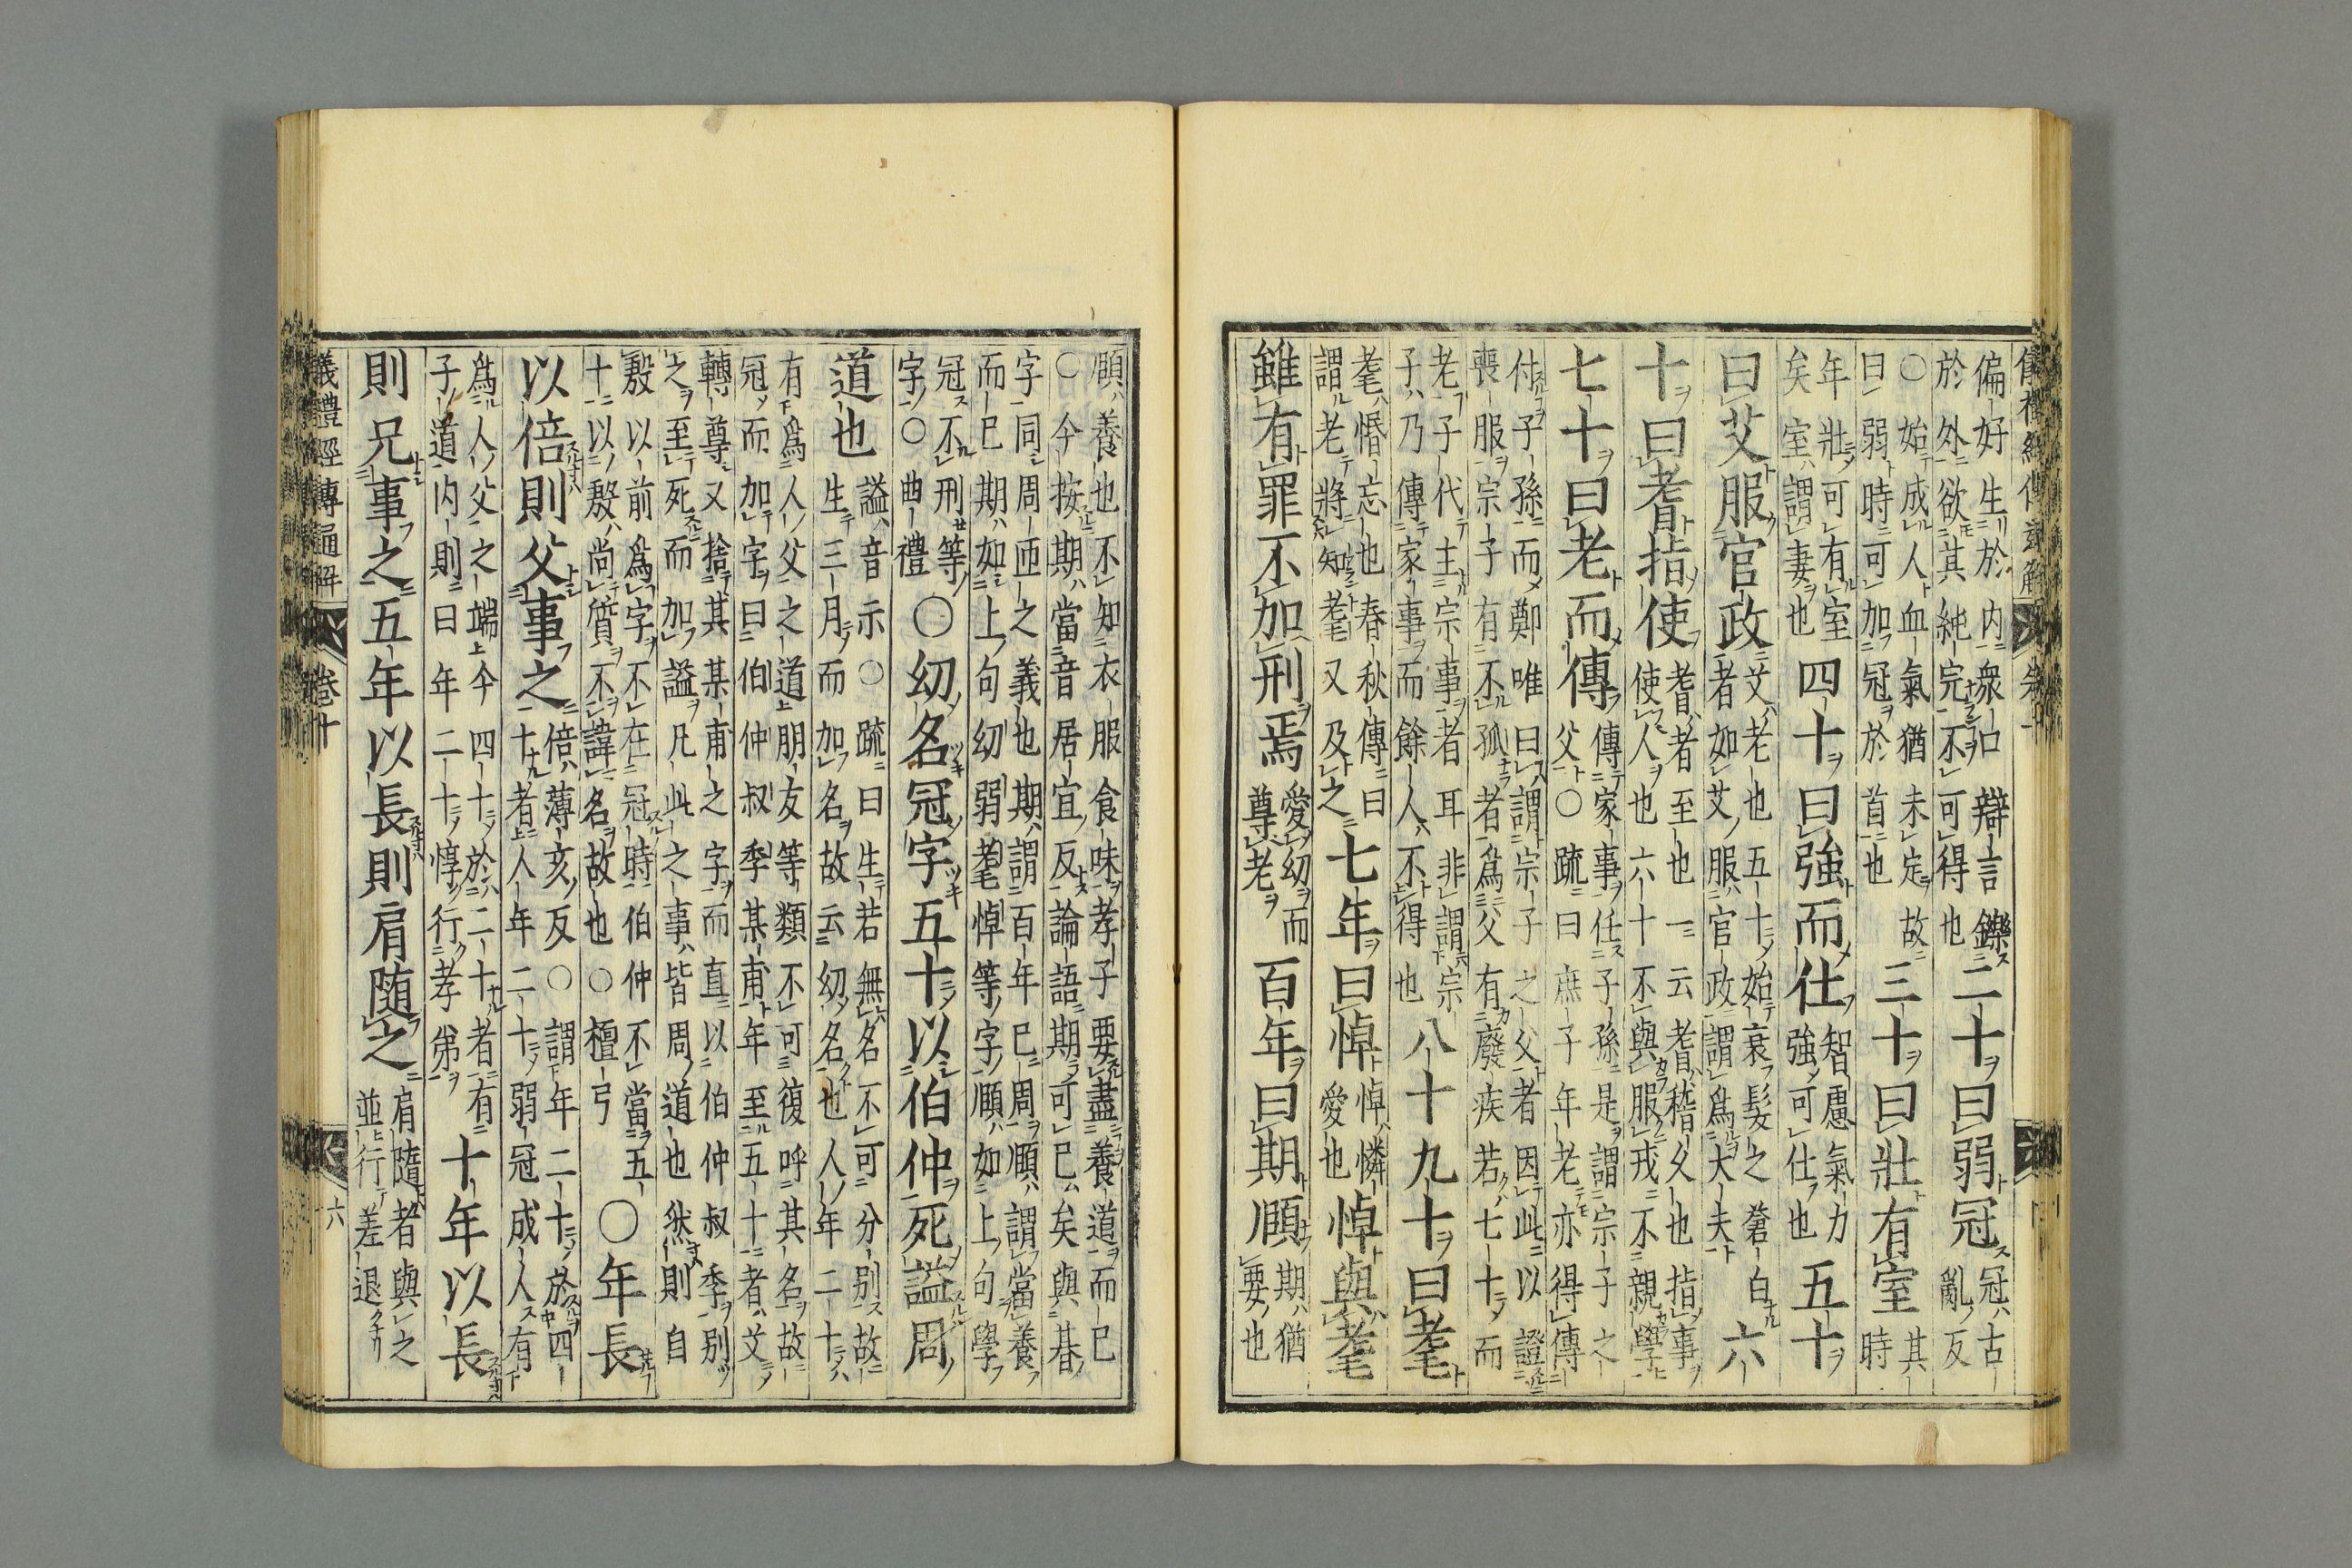 偏好生於内衆口辯言鑠
於外欲其純完不可得也
二十曰弱冠
冠古
亂反
○始成人血氣猶未定故
曰弱時可加冠於首也
三十曰壯有室
其
時
年壯可有室
矣室謂妻也
四十曰強而仕
智慮氣力
強可仕也
五十
曰艾服官政
艾老也五十始衰髪之蒼白
者如艾服官政謂爲大夫
六
十曰耆指使
耆者至也一云耆稽久也指事
使人也六十不與服戎不親學
七十曰老而傳
傳家事任子孫是謂宗子之
父○疏曰庶子年老亦得傳
付子孫而鄭唯曰謂宗子之父者因此以證
喪服宗子有不孤者爲父有廢疾若七十而
老子代主宗事者耳非謂宗
子乃傳家事而餘人不得也
八十九十曰耄
耄惛忘也春秋傳曰
謂老將知耄又及之
七年曰悼
悼憐
愛也
悼與耄
雖有罪不加刑焉
愛幼而
尊老
百年曰期頤
期猶
要也
頤養也不知衣服食味孝子要盡養道而已
○今按期當音居宜反論語期可已矣與朞
字同周匝之義也期謂百年已周頤謂當養
而已期如上句幼弱耄悼等字頤如上句學
冠不刑等
字○曲禮
○幼名冠字五十以伯仲死謚周
道也
謚音示○疏曰生若無名不可分别故
生三月而加名故云幼名也人年二十
有爲人父之道朋友等類不可復呼其名故
冠而加字曰伯仲叔季某甫年至五十者艾
轉尊又捨其某甫之字而直以伯仲叔季别
之至死而加謚凡此之事皆周道也然則自
殷以前爲字不在冠時伯仲不當五
十以殷尚質不諱名故也○檀弓
○年長
以倍則父事之
倍薄亥反○謂年二十於四
十者人年二十弱冠成人有
爲人父之端今四十於二十者有
子道内則曰年二十惇行孝弟
十年以長
則兄事之五年以長則肩随之
肩隨者與之
並行差退
儀禮經傳通解 卷十 六